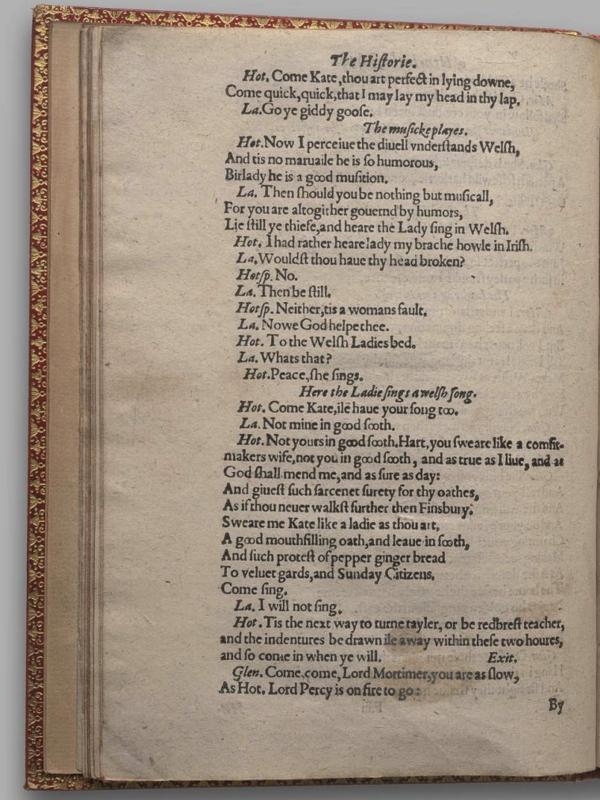 The Hiſtorie.
Hot. Come Kate, thou art perfect in lying downe,
Come quick, quick, that I may lay my head in thy lap.
La. Go ye giddy gooſe.
The muſicke playes.
Hot. Now I perceiue the diuell vnderſtands Welſh,
And tis no maruaile he is ſo humorous,
Birlady he is a good muſition.
La. Then ſhould you be nothing but muſicall,
For you are altogither gouernd by humors,
Lie ſtill ye thiefe, and heare the Lady ſing in Welſh.
Hot. I had rather heare lady my brache howle in Iriſh.
La, Wouldſt thou haue thy head broken?
Hotſp. No.
La. Then be ſtill.
Hotſp. Neither, tis a womans fault.
La. Nowe God helpe thee.
Hot. To the Welſh Ladies bed.
La. Whats that?
Hot. Peace, ſhe ſings.
Here the Ladie ſings a welſh ſong.
Hot. Come Kate, ile haue your ſong too.
La. Not mine in good ſooth.
Hot. Not yours in good ſooth. Hart, you ſweare like a comfit-
makers wife, not you in good ſooth, and as true as I liue, and as
God ſhall mend me, and as ſure as day:
And giueſt ſuch ſarcenet ſurety for thy oathes,
As if thou neuer walkſt further then Finsbury.
Sweare me Kate like a ladie as thou art,
A good mouthfilling oath, and leaue in ſooth,
And ſuch proteſt of pepper ginger bread
To veluet gards, and Sunday Citizens.
Come ſing.
La. I will not ſing.
Hot. Tis the next way to turne tayler, or be redbreſt teacher,
and the indentures be drawn ile away within theſe two houres,
and ſo come in when ye will. Exit.
Glen. Come, come, Lord Mortimer, you are as ſlow,
As Hot. Lord Percy is on fire to go:
By